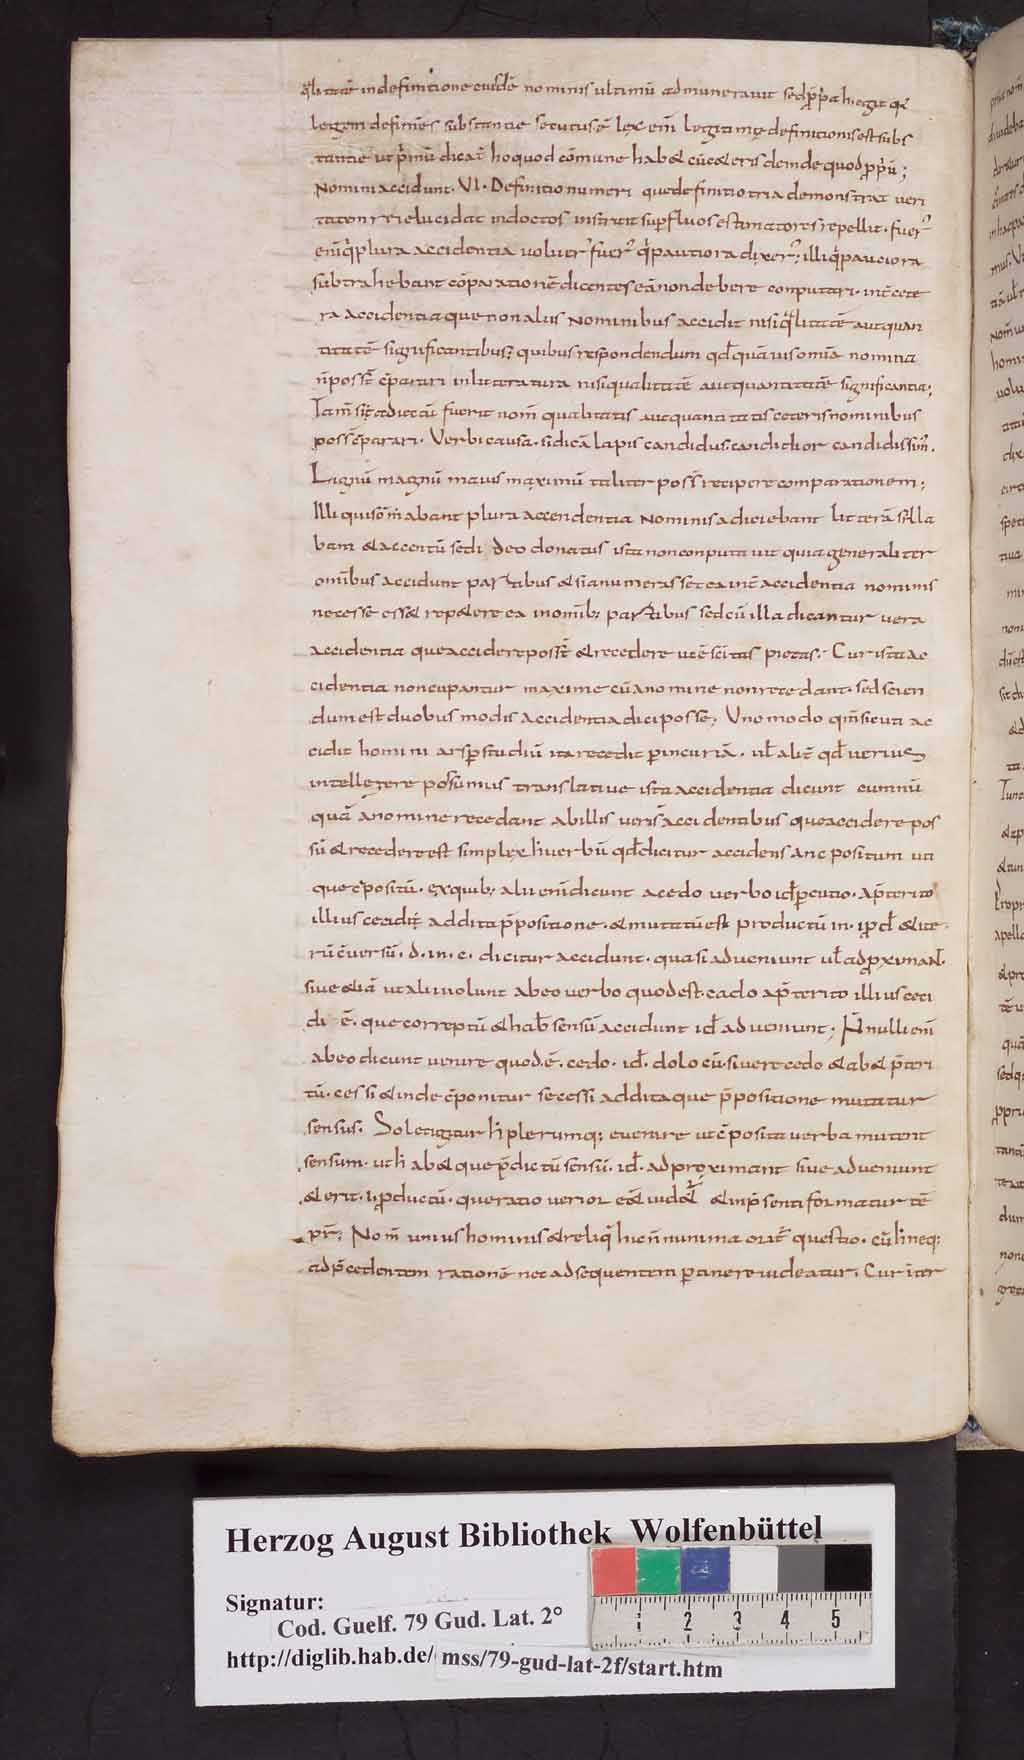 q̄litatē indefinitione eiusdē nominis ultimū adnumerauit sed p̄p̄a h. egit q̄r
legem definiēs substantie secutus ē lex eni legitimę definitionis est subs
tantie ut p̄mū dicat hoquod cōmune hab& cū c&eris deinde quod pp̄ū;
Nomini accidunt. VI. Definitio numeri que definitio tria demonstrat ueri
tatem rei elucidat indoctos instruit supfluos estimatores repellit. fuer̄
eni q̄ plura accidentia uoluer̄ fuer̄ q̄ pautiora dixer̄; illi q̄ pauciora
subtrahebant cōparationē dicentes eā non debere conputari. int̄ cete
ra accidentia que non aliis Nominibus accidit nisi q̄litatē aut quan
titatē significantibus; quibus respondendum qd̄ quāuis omīa nomina
n̄ poss̄t c̄parari in litteratura nisi qualitatē aut quantitatē significantia;
Tam̄ si adiectū fuerit nom̄ qualitatis aut quantitatis ceteris nominibus
poss̄ c̄parari. Verbi causa. si dicā lapis candidus. candidior candidissim̄.
Lignū magnū maius maximū taliter poss̄ recipere comparationem;
Illi qui som̄abant plura accendentia Nominis adiciebant litterā silla
bam & accentū sed ideo donatus ista non conputauit quia generaliter
omībus accidunt partibus & si anumerasset ea int̄ accidentia nominis
necesse ess& rep&ere ea in omīb; partibus sed cū illa dicantur uera
accidentia que accidere poss̄t & recedere ut ē scitas pietas. Cur ista ac
cidentia noncupantur maxime cū a nomine non recedant. sed scien
dum est duobus modis accidentia dici posse; Uno modo qm̄ sicuti ac
cidit homini ars p studiū ita recedit p incuriā. ul̄ alit̄ qd̄ uerius
intellegere possumus translatiue ista accidentia dicunt cum nū
quā a nomine recedant ab illis ueris accidentibus que accidere pos
sū & recedere est simplex h uerbū qd̄ dicitur accidens anc positum uti
que c̄positū. ex quib; alii eni dicunt a cedo uerbo id p̄cutio. a p̄terito
illius cecidit addita p̄positione. & mutatū est productū in. i pd̄ & ite
rū c̄uersū. d. in. c. dicitur accidunt. quasi adueniunt ul̄ adpximan̄t.
siue &iā ut alii uolunt ab eo uerbo quod est. cado a p̄terito illius ceci
di ē. que correptū & hab& sensū accidunt id. adueniunt; N̄nulli eni
ab eo dicunt uenire quod. ē. cedo. id. do locū. siue recedo & ab& p̄teri
tū. cessi & inde c̄ponitur secessi addita que p̄positione mutatur
sensus. Solet igitur h plerumq; euenire ut c̄posita uerba mutent
sensum. ut h ab& que p̄dictū sensū. id. adproximant siue adueniunt
& erit. i pductū. que ratio uerior ēē uid&r & in p̄senti formatur tē
pr̄; Nom̄ unius hominis & reliq̄ hic n̄ minima orit̄ questio. cū h neq;
ad p̄cedentem rationē nec ad sequentem ptinere uideatur. Cur iter
Herzog August Bibliothek Wolfenbüttel
Signatur:
Cod. Guelf. 79 Gud. Lat. 2°
http://diglib.hab.de/ mss/79-gud-lat-2f/start.htm
1 2 3 4 5